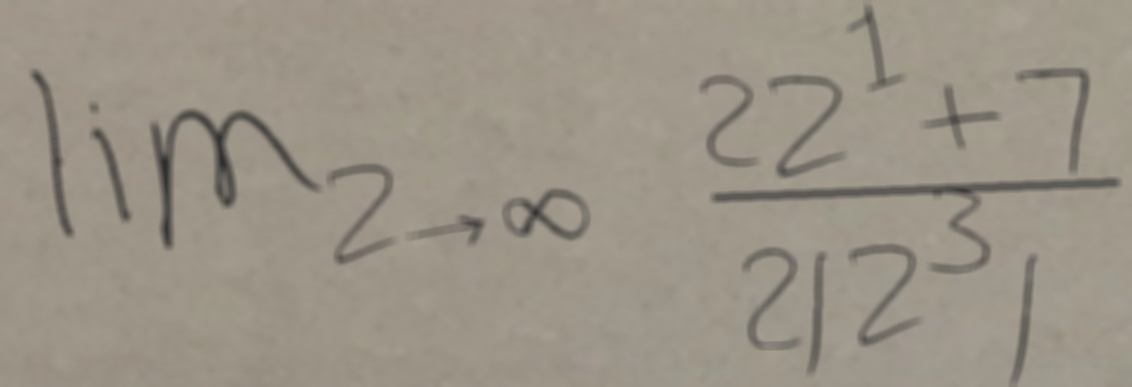 lim_{z→∞} \frac{2z^1+7}{2|z^3|}